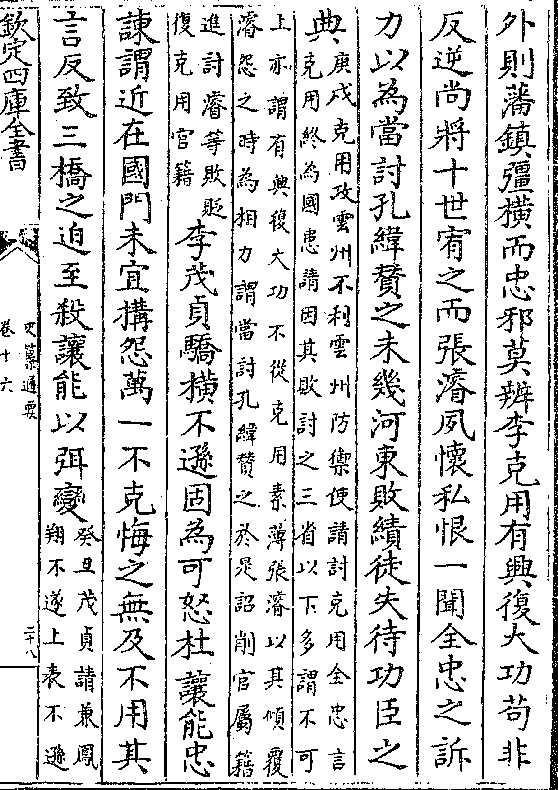 外則藩鎮彊橫而忠邪莫辨李克用有興復大功苟非
反逆尚將十世宥之而張濬夙懷私恨一聞全忠之訴
力以為當討孔緯賛之未幾河東敗績徒失待功臣之
典
庚戌克用攻雲州不利雲州防禦使請討克用全忠言
克用終為國患請因其敗討之三省以下多謂不可
上亦謂有興復大功不從克用素薄張濬以其傾覆
濬怨之時為相力謂當討孔緯賛之於是詔削官屬籍
進討濬等敗貶
復克用官籍
李茂貞驕橫不遜固為可怒杜讓能忠
諫謂近在國門未宜搆怨萬一不克悔之無及不用其
言反致三橋之迫至殺讓能以弭變
癸丑茂貞請兼鳳
翔不遂上表不遜
欽定四庫全書
史纂通要
卷十六
二十八